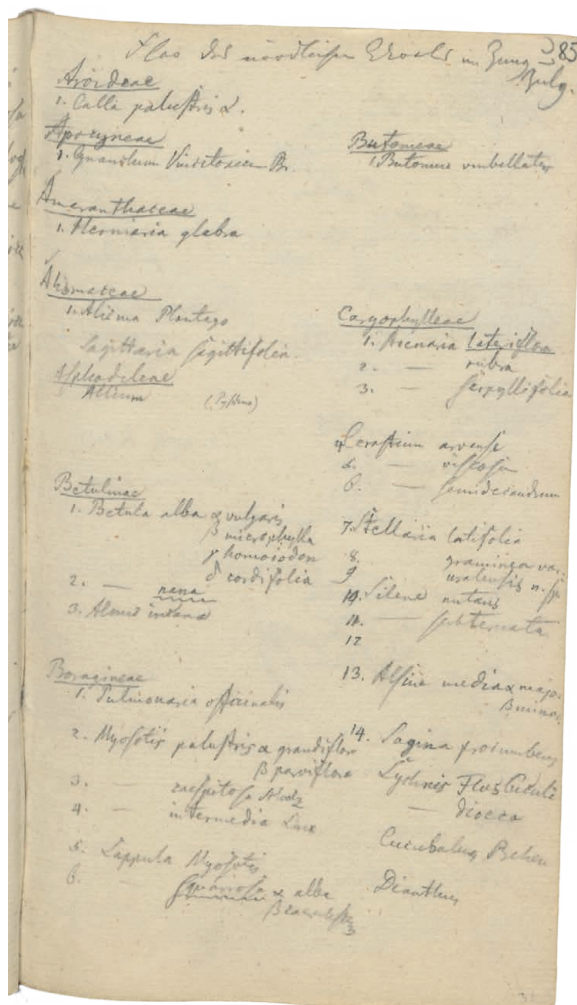 85
Flora des nördlichen Urals im Juny July.
Aroideae
1. Calla palustris L.
Apocyneae
1. Cynanchum Vincetoxicum Br.
Amaranthaceae
1. Herniaria glabra
Alismaceae
1. Alisma Plantago
Sagittaria sagittifolia
Asphodeleae
Allium
Betulinae
1. Betula alba α vulgaris
β microphylla
γ homoiodon
δ cordifolia
2. — nana
3. Alnus incana
Boragineae
1. Pulmonaria officinalis
2. Myosotis palustris α grandiflora
β parviflora
3. — caespitosa
4. — intermedia Link
5. Lappula Myosotis
6. — squarrosa α alba
β
Butomeae
1. Butomus umbellatus
Caryophylleae
1. Arenaria lateriflora
2. — rubra
3. — serpyllifolia
4. Cerastium arvense
5. — viscosum
6. — semidecandrum
7. Stellaria latifolia
8. graminea var
9 uralensis n. sp
10. Silene nutans
11. —
12
13. Alsine media α major
β minor
14. Sagina procumbens
Lychnis Flos Cuculi
— dioeca
Cucubalus Behen
Dianthus